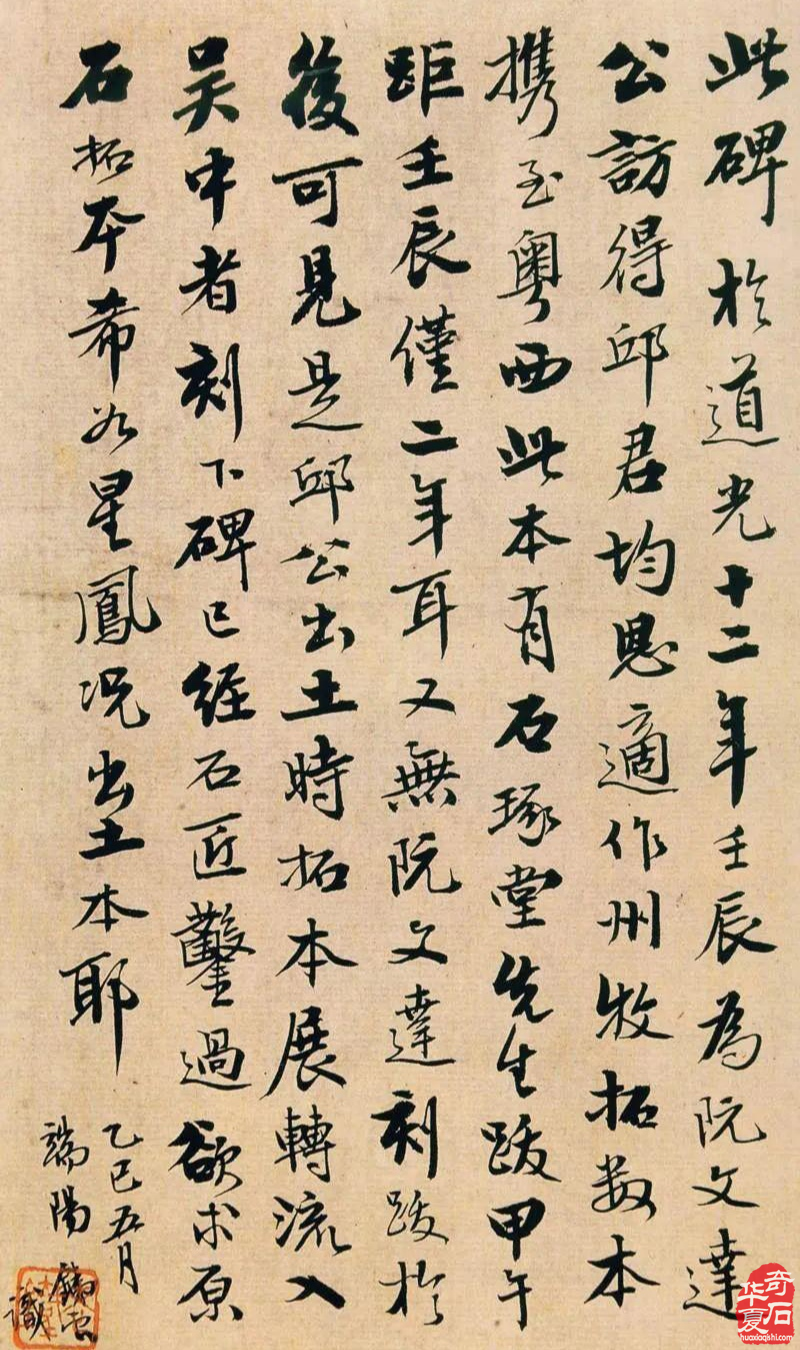 此碑於道光十二年壬辰為阮文達
公訪得邱君均恩適作州牧拓数本
携至粵西此本有石琢堂先生跋甲午
距壬辰僅二年耳又無阮文達刻跋於
後可見是邱公出土時拓本展轉流入
吴中者刻下碑已經石匠鑿過欲求原
石拓本希如星鳳況出土本耶
乙巳五月
端陽
鐵雲
識
奇石
华夏
huaxiaqishi.com